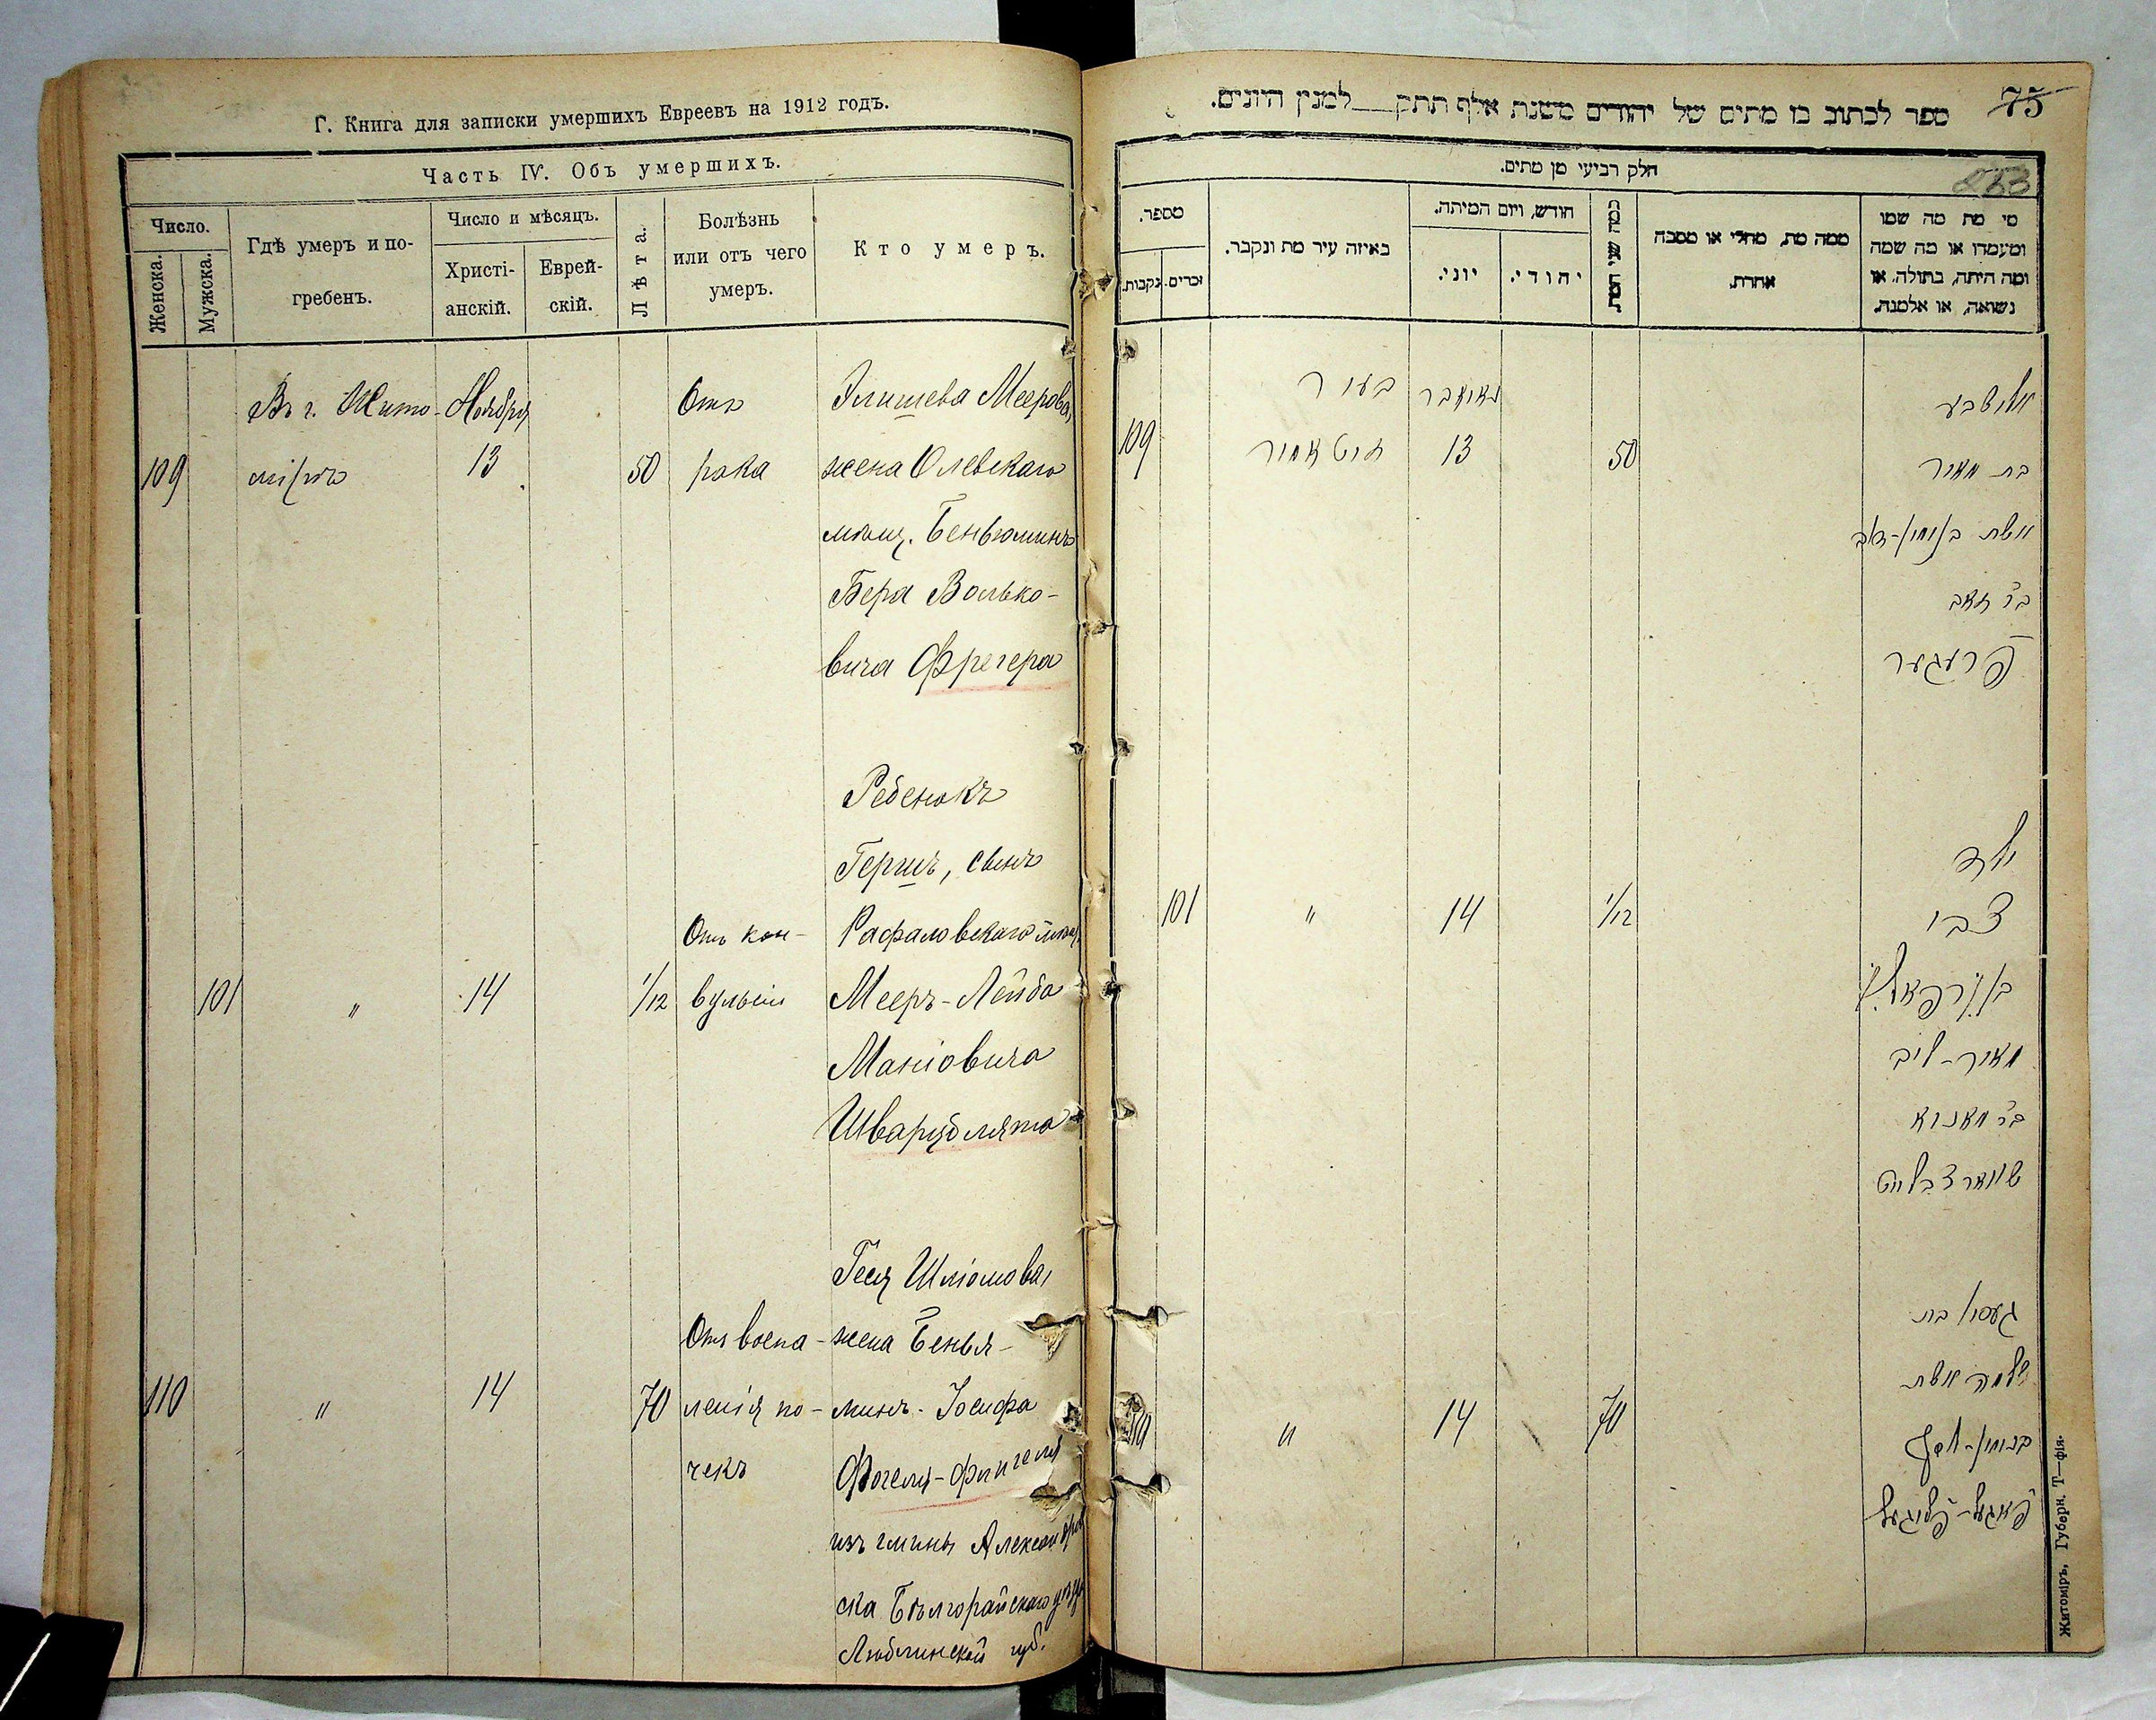 Г. Книга для записки умершихъ Евреевъ на 1912 годъ.
Часть IV. Объ умершихъ.
Число.
Женска.
Мужска.
Гдѣ умеръ и по-
гребенъ.
Число и мѣсяцъ.
Христі-
анскій.
Еврей-
скій.
Лѣта.
Болѣзнь
или отъ чего
умеръ.
Кто умеръ.
Въ г. Жито-
міръ
109
Ноября
13
50
Отъ
рака
Элишева Меерова,
жена Олевскаго
мѣщ. Беньюминъ
Бера Волько-
вича Фрегера
101
"
14
1/12
Отъ кон-
вульсіи
Ребенокъ
Гершъ, сынъ
Рафаловскаго мѣщ.
Мееръ-Лейба
Маніовича
Шварцблята
110
"
14
70
Отъ воспа-
ленія по-
чекъ
Геся Шліомова,
жена Бенья-
минъ-Іосифа
Фогель-Флигеля
изъ гмины Александров
ска Бѣлгорайскаго уѣзда
Люблинской губ.
75
ספר לכתוב בו מתים של יהודים משנת אלף תתק למנין היונים.
חלק רביעי מן מתים.
מספר.
נקבות.
זכרים.
באיזה עיר מת ונקבר.
חודש, ויום המיתה.
יוני.
יהודי.
כמה שני המת
ממה מת, מחלי או מסבה
אחרת.
מי מת מה שמו
ומעמדו או מה שמה
ומה היתה, בתולה, או
נשואה, או אלמנה.
109
בעיר
זיטאמיר
נאיאבר
13
50
אלישבע
בת מאיר
אשת בנימין-זאב
בר זאב
פרעגער
101
"
14
1/12
ילד
צבי
מאיר-ליב
בר מאניא
שווארצבלאט
110
"
14
70
געסי בת
שלמה אשת
בנימין-יוסף
פאגעל-פליגעל
Житоміръ, Губерн. Т—фія.